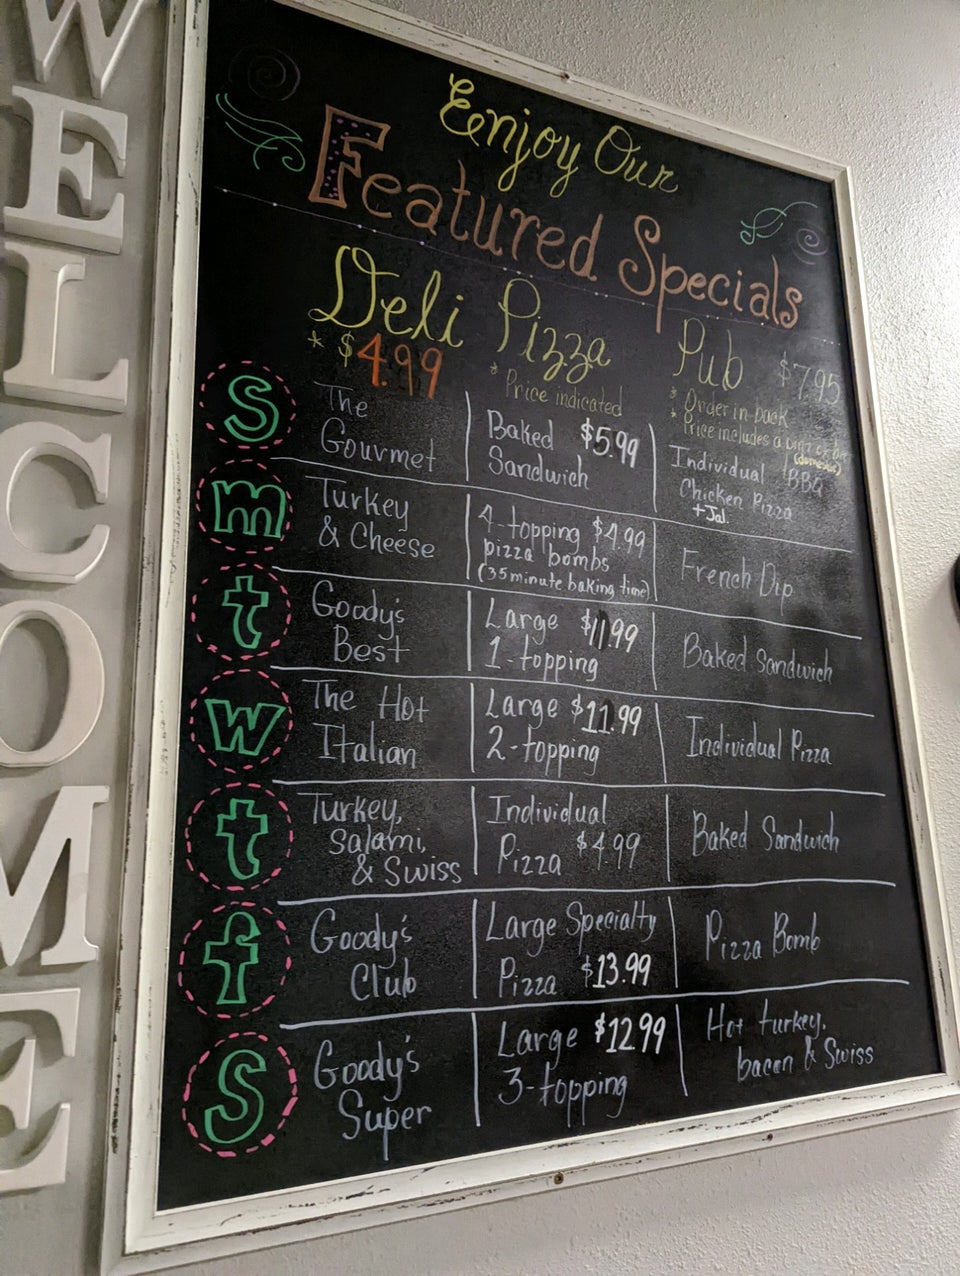 WELCOME
Enjoy Our
Featured Specials
Deli
* $4.99
Pizza
* Price indicated
Pub $7.95
* Order in back
* Price includes a
(domestic)
S
The
Gourmet
Baked $5.99
Sandwich
Individual BBQ
Chicken Pizza
+ Jal.
m
Turkey
& Cheese
4-topping $4.99
pizza bombs
(35 minute baking time)
French Dip
t
Goody's
Best
Large $11.99
1-topping
Baked Sandwich
w
The Hot
Italian
Large $11.99
2-topping
Individual Pizza
t
Turkey,
Salami,
& Swiss
Individual
Pizza $4.99
Baked Sandwich
f
Goody's
Club
Large Specialty
Pizza $13.99
Pizza Bomb
S
Goody's
Super
Large $12.99
3-topping
Hot turkey,
bacon & Swiss